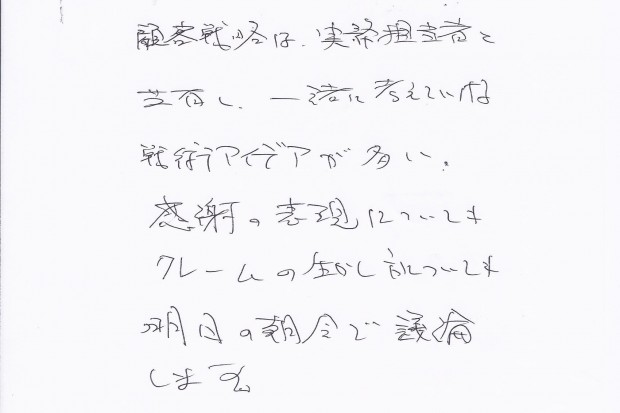 顧客戦略は、実務担当者と
共有し、一緒に考えていける
戦術アイデアが多い。
感謝の表現についても
クレームの生かし方についても
明日の朝会で議論
します。